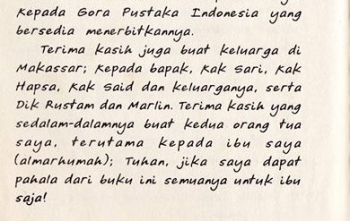 kepada Gora Pustaka Indonesia yang
bersedia menerbitkannya.
Terima kasih juga buat keluarga di
Makassar; kepada bapak, kak Sari, kak
Hapsa, kak Said dan keluarganya, serta
Dik Rustam dan Marlin. Terima kasih yang
sedalam-dalamnya buat kedua orang tua
saya, terutama kepada ibu saya
(almarhumah); Tuhan, jika saya dapat
pahala dari buku ini semuanya untuk ibu
saja!